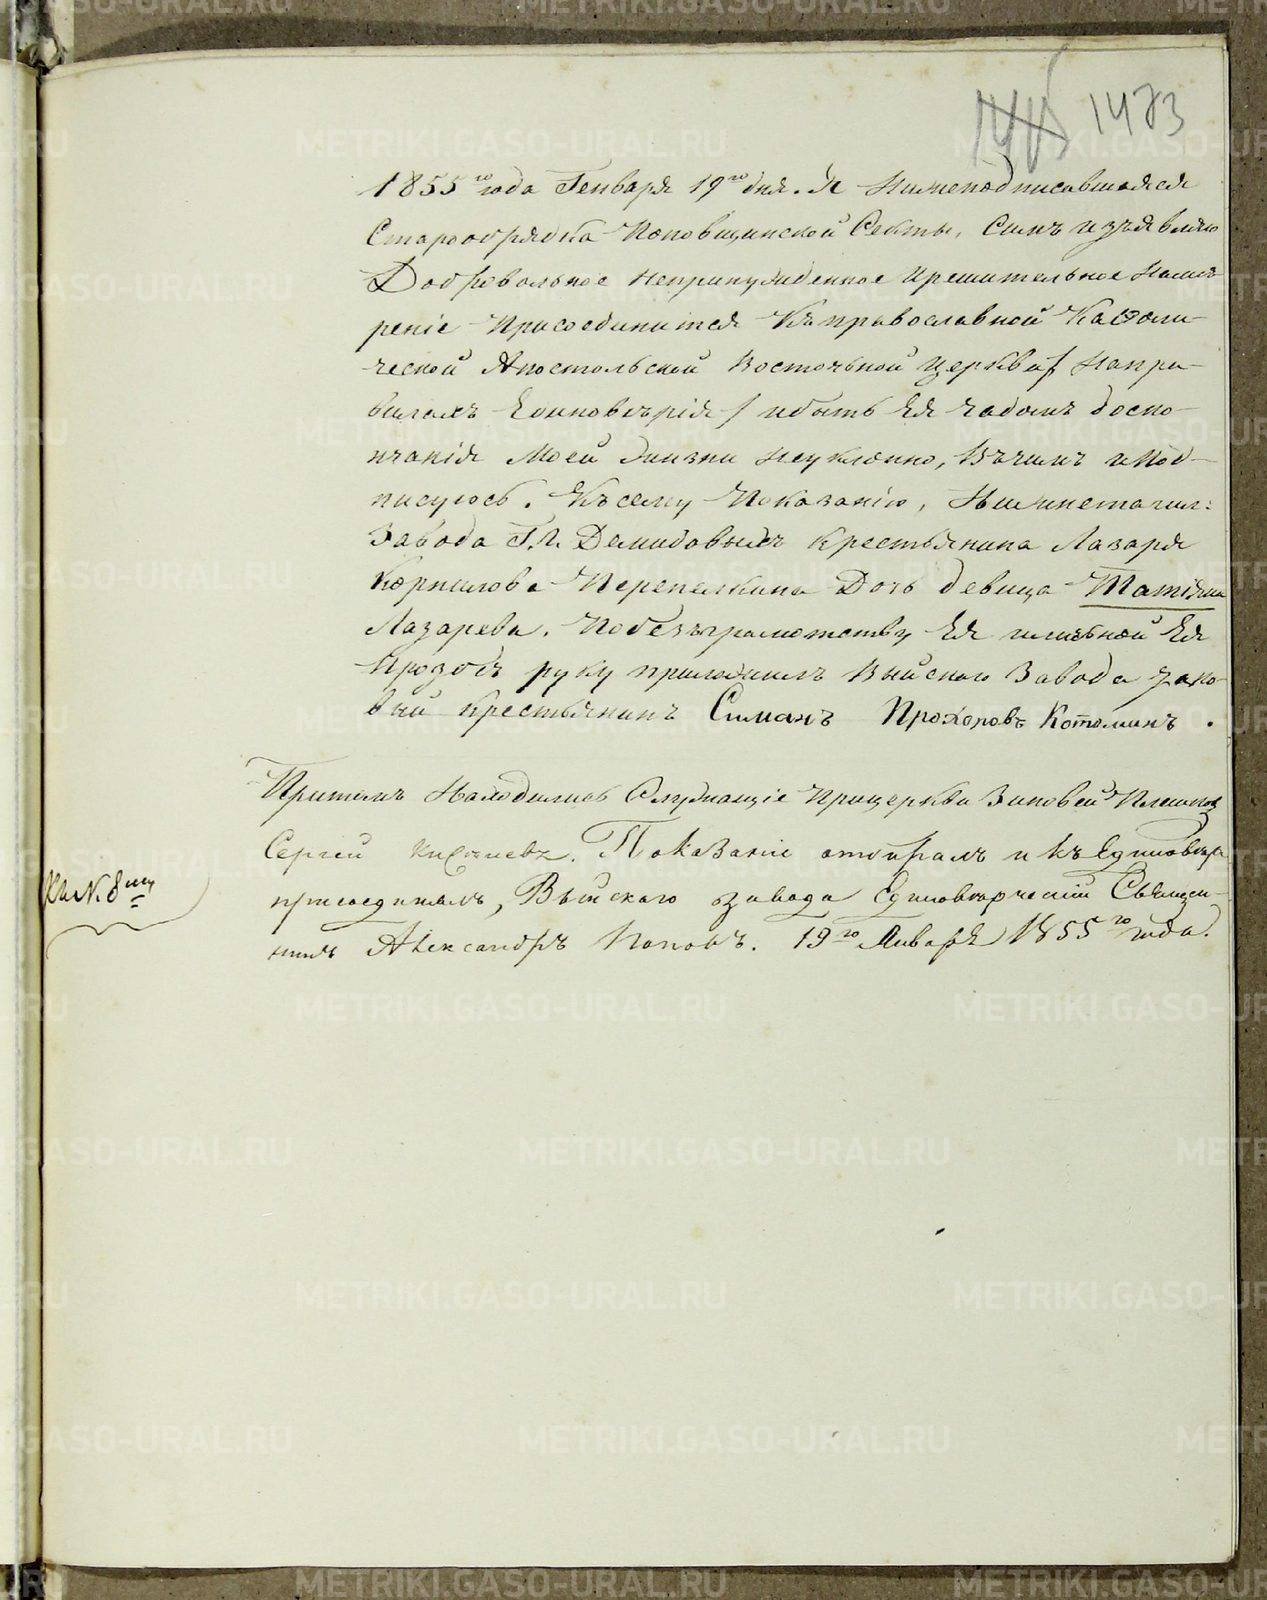 1473
1855го года Генваря 19го дня. Я нижеподписавшаяся
Старообрядка Поповщинской Секты, Симъ изъявляю
Добровольное непринужденное ирешительное Наме-
реніе Присоединится Къ православной Каѳоли-
ческой Апостольской Восточной церкви / Напра-
вилахъ Единоверія / ибыть Ея чадомъ доско-
нчанія Моей жизни неуклонно, Въчемъ иПод-
писуюсь. Ксему Показанію, Нижнетагил:
Завода Г.г. Демидовыхъ Крестьянина Лазаря
Корнилова Перепелкина Дочь девица Татіяна
Лазарева. Побезъграмотству Ея иличной Ея
прозбе руку приложилъ Выйского Завода
вый крестьянинъ Симанъ Прохоровъ Котоминъ.
Притомъ Находились Служащіе Прицеркви Зиновей
Сергей Показаніе отобралъ и къ Единоверію
присоединилъ, Выйскаго завода Единоверческій Священ-
никъ Александръ Поповъ. 19го Января 1855го года.
Къ N. 8му
METRIKI.GASO-URAL.RU